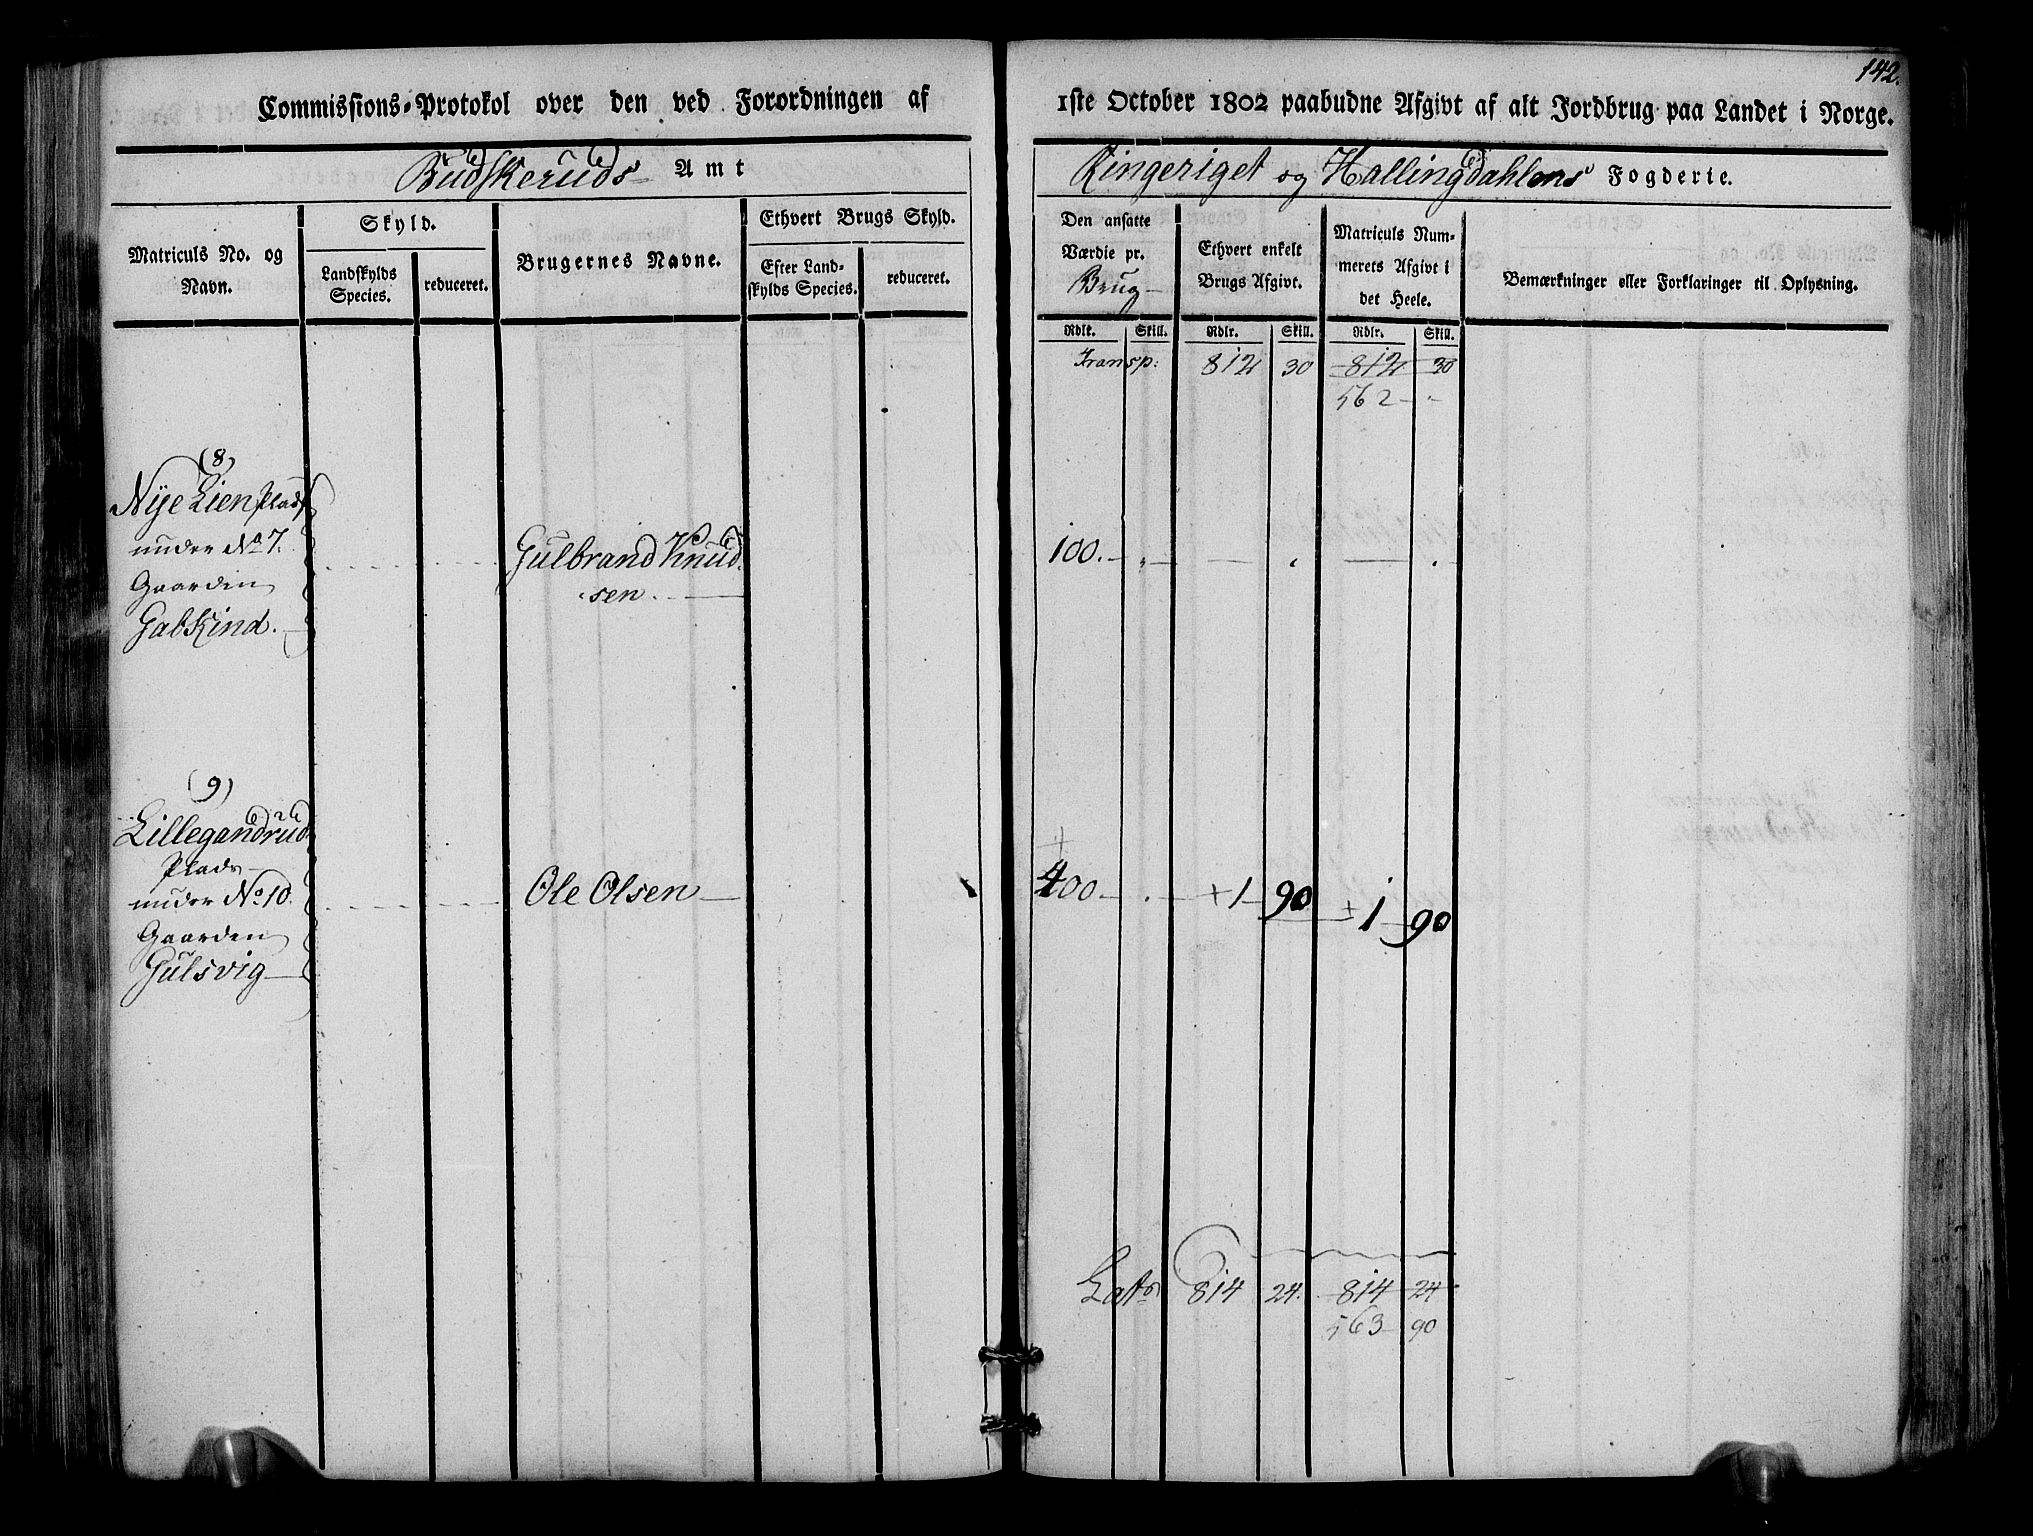 142.
Commissions-Protokol over den ved Forordningen af 1ste October 1802 paabudne Afgivt af alt Jordbrug paa Landet i Norge.
Budskeruds Amt
Ringeriget og Hallingdahlens Fogderie.
Matriculs No. og Navn.
Skyld.
Landskylds Species.
reduceret.
Brugernes Navne.
Ethvert Brugs Skyld.
Efter Landskylds Species.
reduceret.
Den ansatte Værdie pr. Brug
Ethvert enkelt Brugs Afgivt.
Matriculs Nummerets Afgivt i det Heele.
Bemærkninger eller Forklaringer til Oplysning.
Rdlr. Skill. Rdlr. Skill. Rdlr. Skill.
Transp: 812 30 812 30
562 - -
(8)
Nye Lien Plads
under No 7.
Gaarden
Galskind.
Gulbrand Knud-
sen.
100. - „ - - „ - .
(9)
Lillegandrud
Plads
under No 10.
Gaarden
Gulsvig
Ole Olsen
+
400 - . + 1 90 + 1 90
Lats 814 24. 814 24
563 90